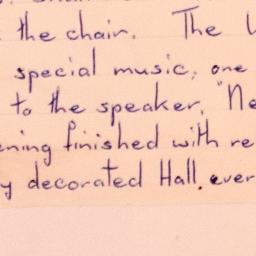 the chair. The
special music, one
to the speaker, "Ne
ening finished with re
y decorated Hall, ever